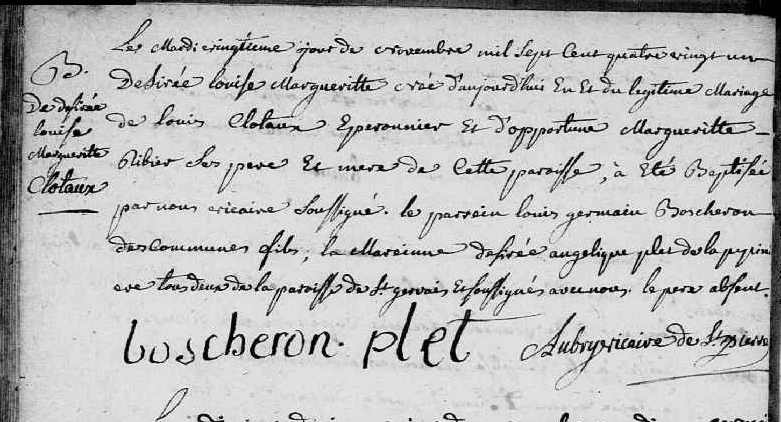 Le Mardi vingtieme jour de novembre mil sept cent quatre vingt un
B.
Desirée louise Margueritte née d'aujourd'huis En Et du legitime Mariage
De desirée
de louis Clotaux Eperonnier Et d'opportune Margueritte
louise
Margueritte
Ribier ses pere Et mere de Cette paroisse, à Eté Baptisée
Clotaux
par nous vicaire soussigné. le parrein louis germain Boscheron
des Communes fils, la Mareinne desirée angelique plet de la pepin
ere tous deux de la paroisse de St gervais Et soussignés avec nous. le pere absent.
boscheron. plet Aubry vicaire de St pierre